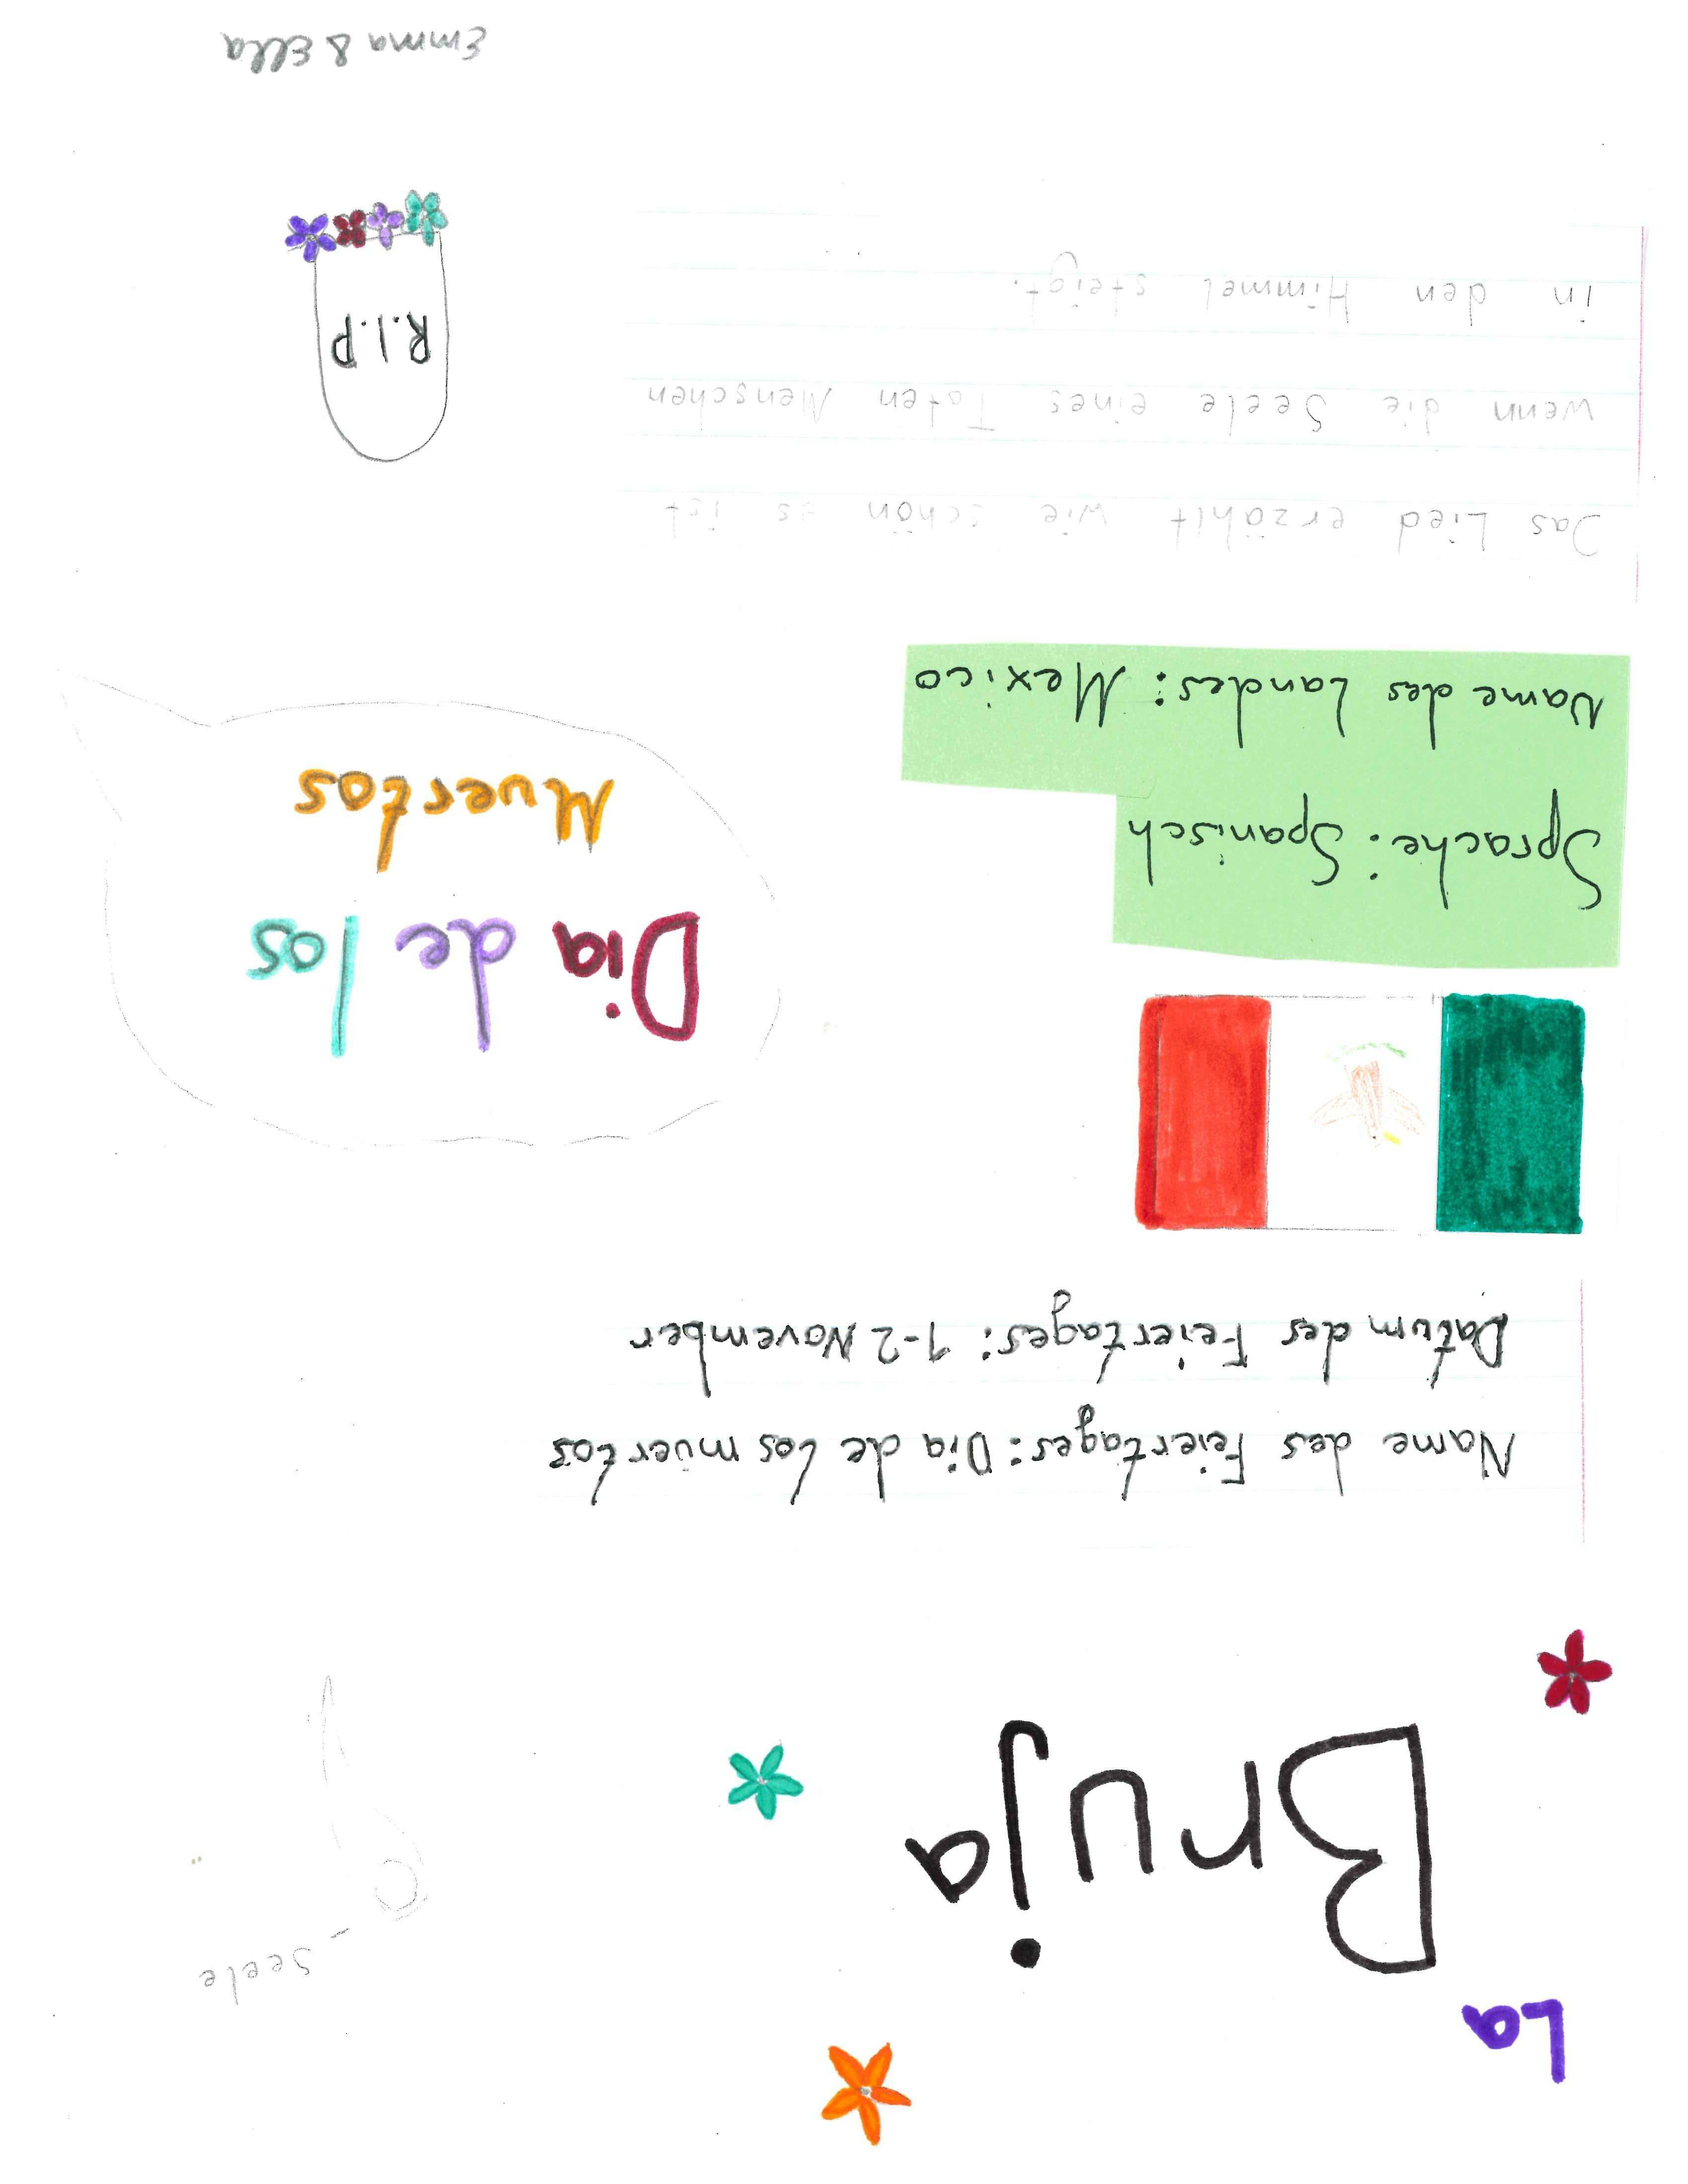 La
Bruja
Seele
Name des Feiertages: Dia de los muertos
Datum des Feiertages: 1-2 November
Dia de los
Muertos
Sprache: Spanisch
Name des Landes: Mexico
Das Lied erzählt wie schön es ist
wenn die Seele eines Toten Menschen
in den Himmel steigt.
R.I.P
Emma & Ella